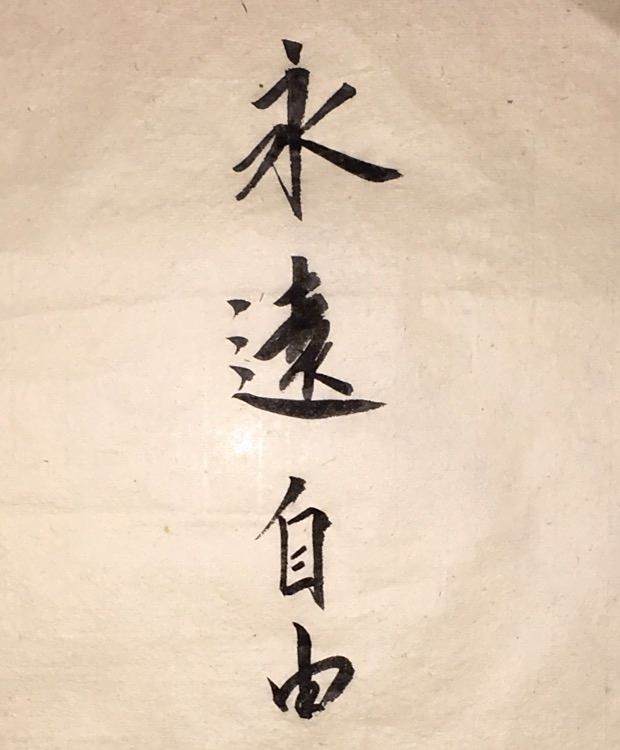 永遠自由